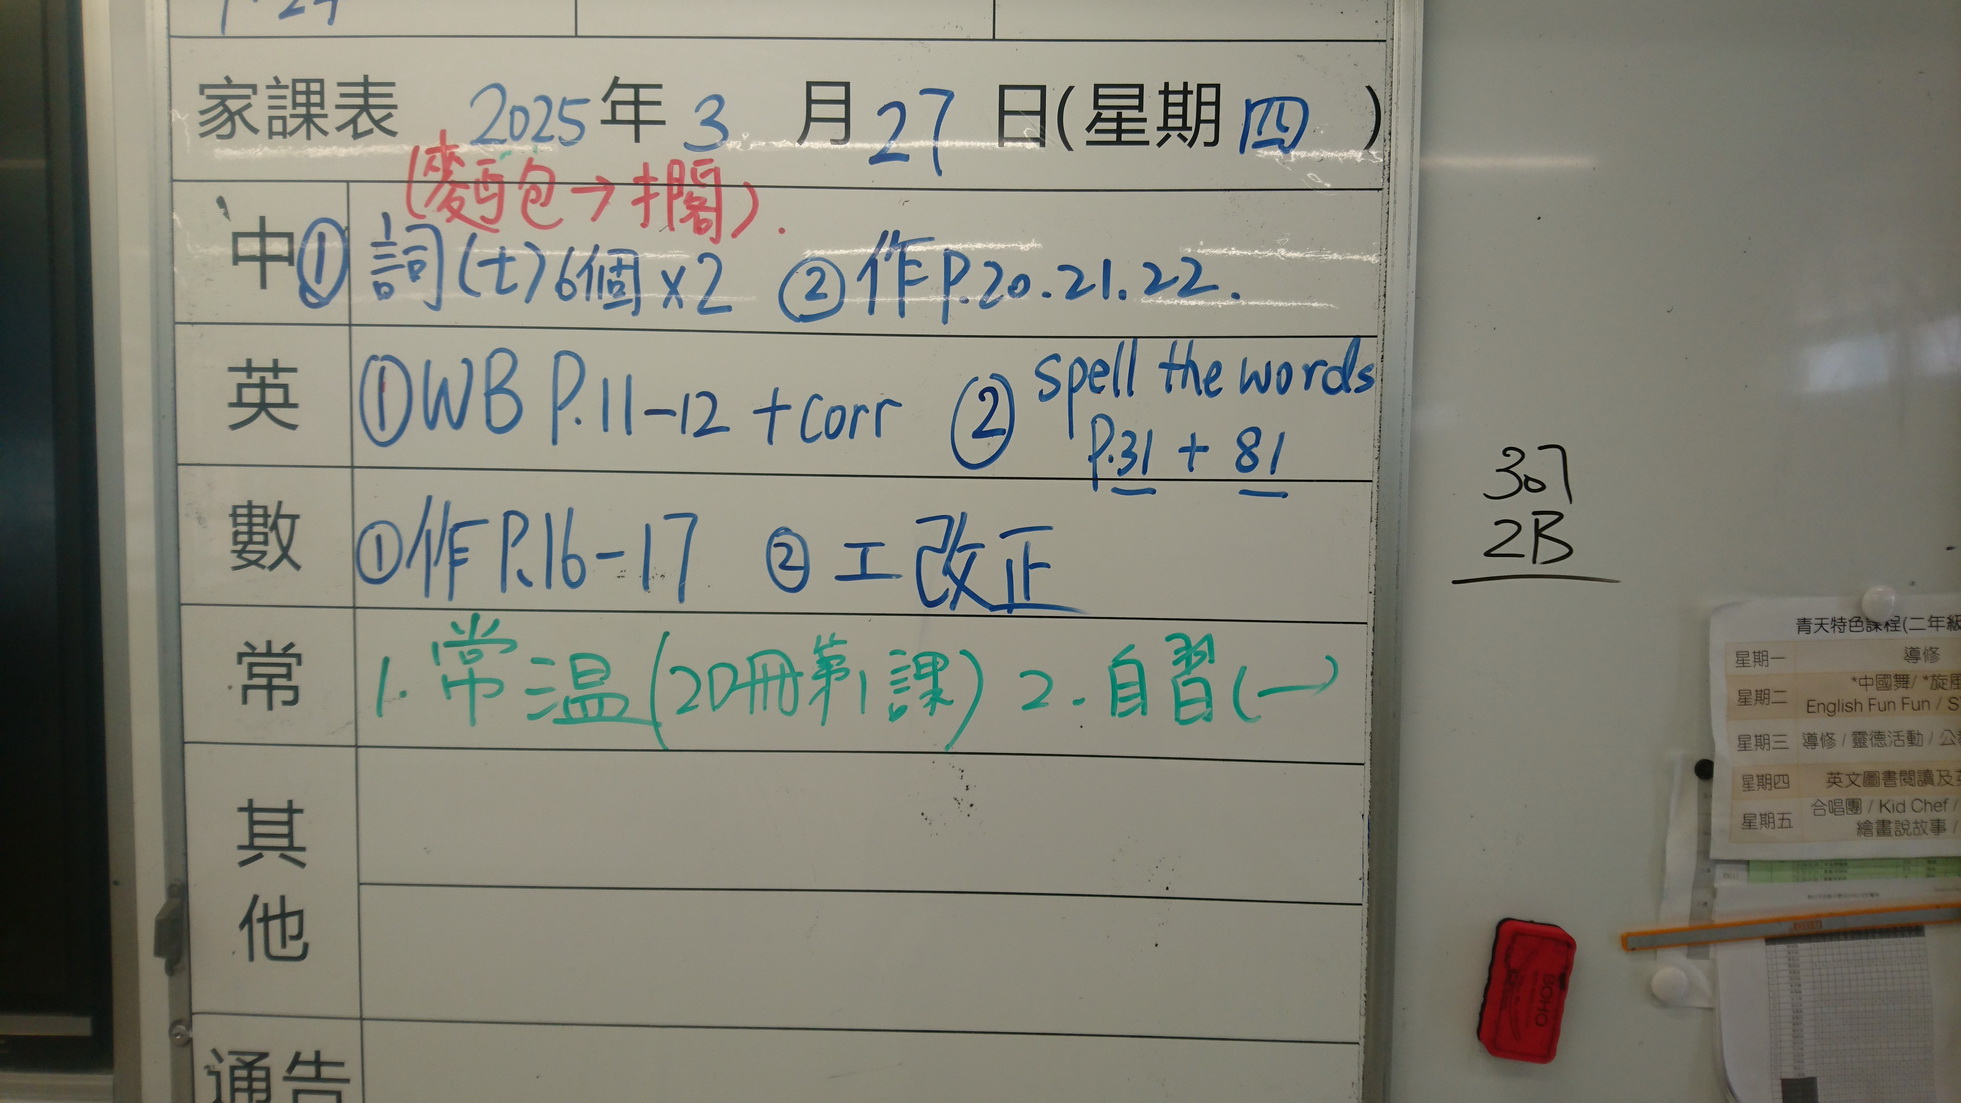 家課表 2025年3月27日(星期四)
(麵包→擱).
中 ① 詞(七)6個x2 ② 作P.20.21.22.
英 ① WB P.11-12 +corr ② spell the words
P.31 + 81
數 ① 作P.16-17 ② 工改正
常 1.常温(2D冊第1課) 2.自習(一)
其他
通告
307
2B
青天特色課程(二年級
星期一 導修
星期二 *中國舞/ *旋風
English Fun Fun / S
星期三 導修 / 靈德活動 / 公
星期四 英文圖書閱讀及
星期五 合唱團 / Kid Chef /
繪畫說故事 /
BOHO